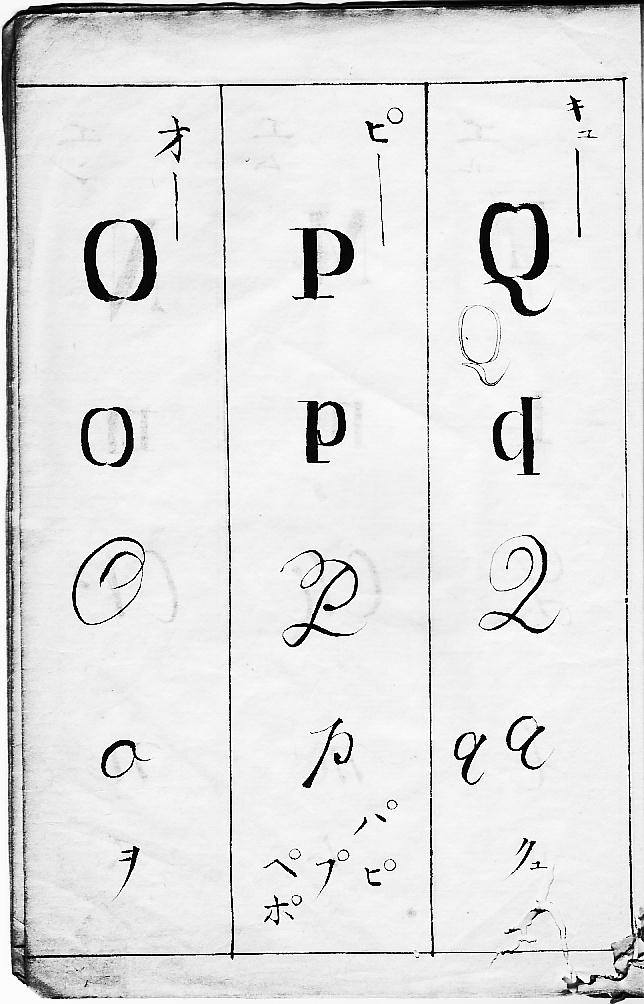 オー
O
o
O
o
ヲ
ピー
P
p
P
p
パ
ペ プ ピ
ポ
キュー
Q
Q
q
Q
q q
クュ